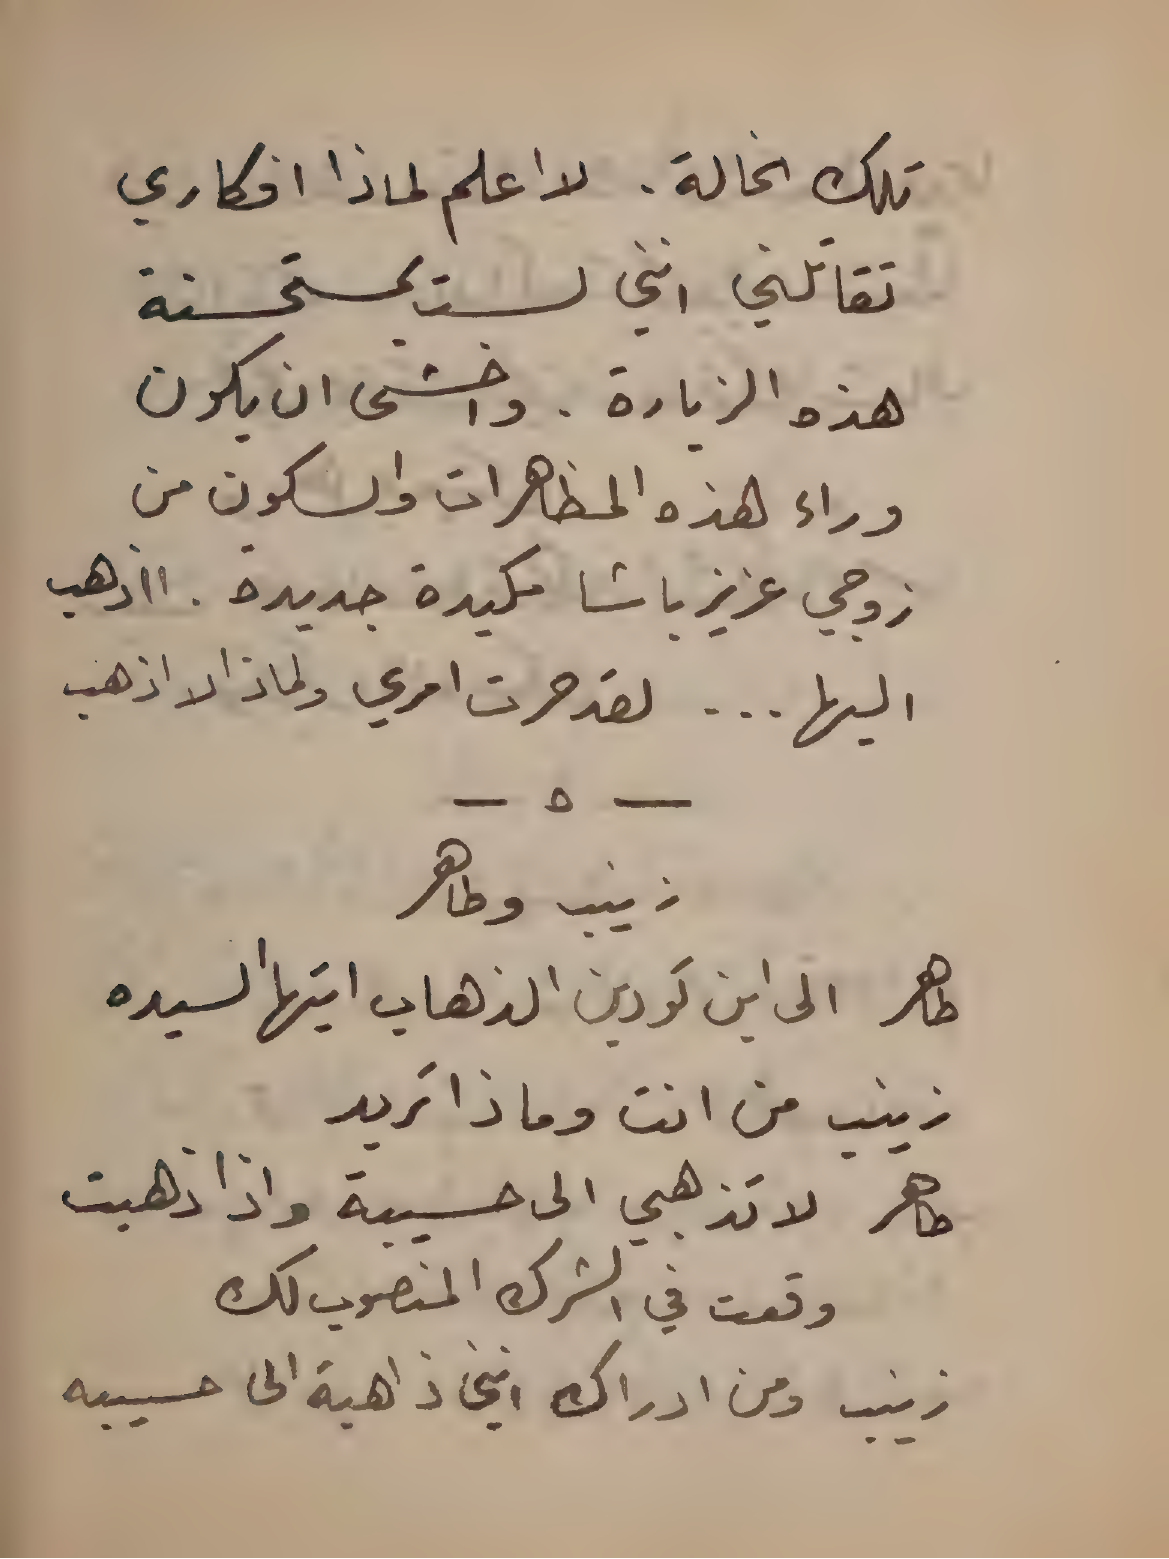 تلك الخالة . لا اعلم لماذا افكاري
تقاتلني انني لست بمستحسنة
هذه الزيارة . واخشى ان يكون
وراء هذه المظاهرات والسكون من
زوجي عزيز باشا مكيدة جديدة . ااذهب
اليها ... لقد حرت امري ولماذا لا اذهب
— ٥ —
زينب وطاهر
طاهر الى اين تودين الذهاب ايتها السيده
زينب من انت وماذا تريد
طاهر لا تذهبي الى حسيبة واذا ذهبت
وقعت في الشرك المنصوب لك
زينب ومن ادراك انني ذاهبة الى حسيبه